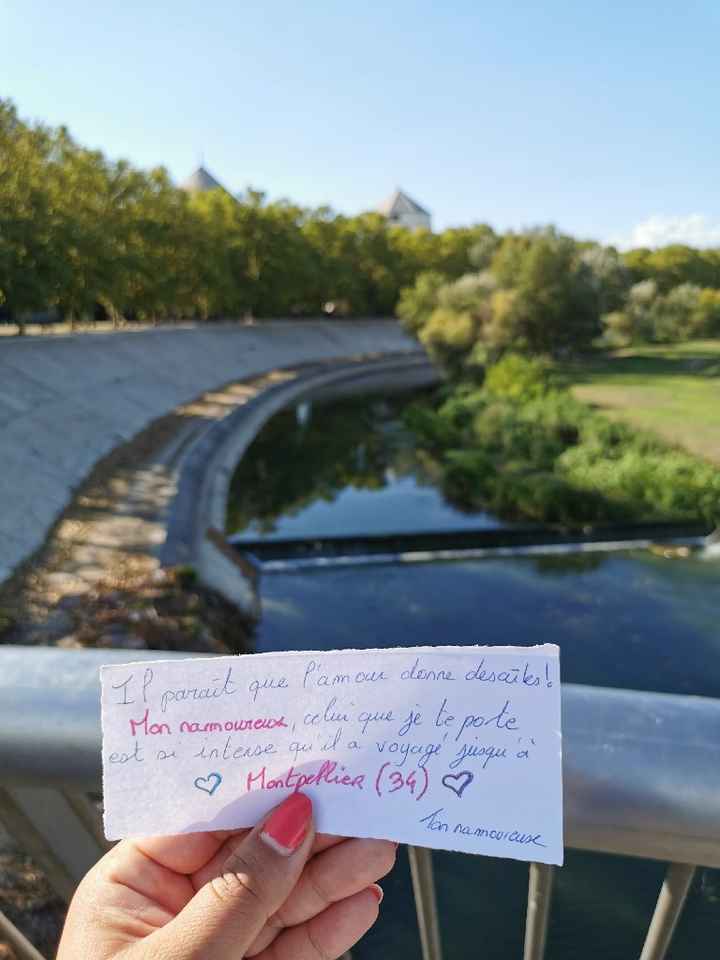 Il paraît que l'amour donne desailes!
Mon namoureux, celui que je te porte
est si intense qu'il a voyagé jusqu'à
♡ Montpellier (34) ♡
Ton namoureuse